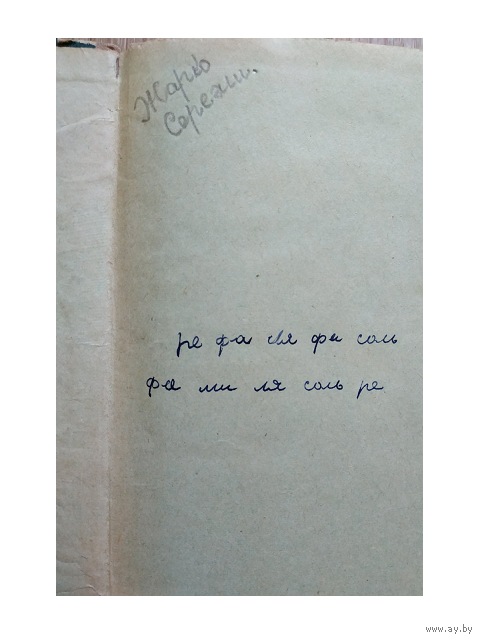 Жарко
Сережи.
ре фа ля фа соль
фа ми ля соль ре
www.ay.by